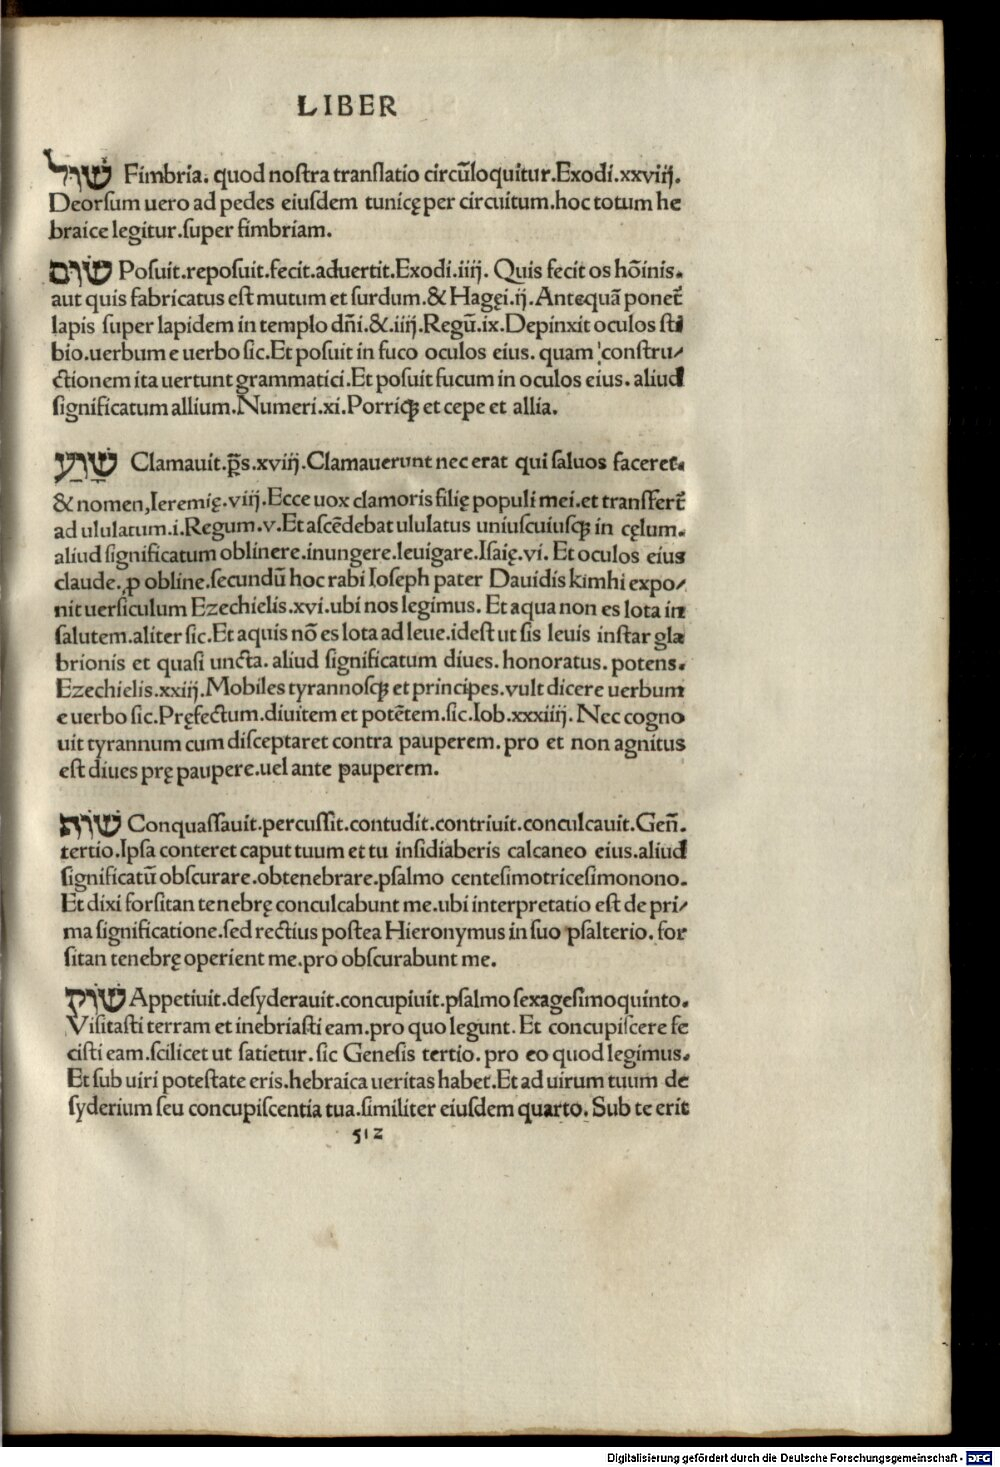 LIBER
שׁוּל Fimbria. quod nostra translatio circūloquitur.Exodi.xxviij.
Deorsum uero ad pedes eiusdem tunicę per circuitum.hoc totum he
braice legitur.super fimbriam.
שׂוּם Posuit.reposuit.fecit.aduertit.Exodi.iiij. Quis fecit os hōinis.
aut quis fabricatus est mutum et surdum.& Hagęi.ij.Antequā ponet̄
lapis super lapidem in templo dn̄i.&.iiij.Regū.ix.Depinxit oculos sti
bio.uerbum e uerbo sic.Et posuit in fuco oculos eius. quam constru⸗
ctionem ita uertunt grammatici.Et posuit fucum in oculos eius. aliud
significatum allium.Numeri.xi.Porriqȝ et cepe et allia.
שָׁוַע Clamauit.p̄s.xviij.Clamauerunt nec erat qui saluos faceret.
& nomen,Ieremię.viij.Ecce uox clamoris filię populi mei.et transfert̄
ad ululatum.i.Regum.v.Et ascēdebat ululatus uniuscuiusqȝ in cęlum.
aliud significatum oblinere.inungere.leuigare.Isaię.vi. Et oculos eius
claude.ꝓ obline.secundū hoc rabi Ioseph pater Dauidis kimhi expo⸗
nit uersiculum Ezechielis.xvi.ubi nos legimus. Et aqua non es lota in
salutem.aliter sic.Et aquis nō es lota ad leue.idest ut sis leuis instar gla
brionis et quasi uncta. aliud significatum diues. honoratus. potens.
Ezechielis.xxiij.Mobiles tyrannosqȝ et principes.vult dicere uerbum
e uerbo sic.Pręfectum.diuitem et potētem.sic.Iob.xxxiiij. Nec cogno
uit tyrannum cum disceptaret contra pauperem. pro et non agnitus
est diues prę paupere.uel ante pauperem.
שׁוּף Conquassauit.percussit.contudit.contriuit.conculcauit.Gen̄.
tertio.Ipsa conteret caput tuum et tu insidiaberis calcaneo eius.aliud
significatū obscurare.obtenebrare.psalmo centesimotricesimonono.
Et dixi forsitan tenebrę conculcabunt me.ubi interpretatio est de pri⸗
ma significatione.sed rectius postea Hieronymus in suo psalterio. for
sitan tenebrę operient me.pro obscurabunt me.
שׁוּק Appetiuit.desyderauit.concupiuit.psalmo sexagesimoquinto.
Visitasti terram et inebriasti eam.pro quo legunt. Et concupiscere fe
cisti eam.scilicet ut satietur. sic Genesis tertio. pro eo quod legimus.
Et sub uiri potestate eris.hebraica ueritas habet.Et ad uirum tuum de
syderium seu concupiscentia tua.similiter eiusdem quarto. Sub te erit
512
Digitalisierung gefördert durch die Deutsche Forschungsgemeinschaft - DFG